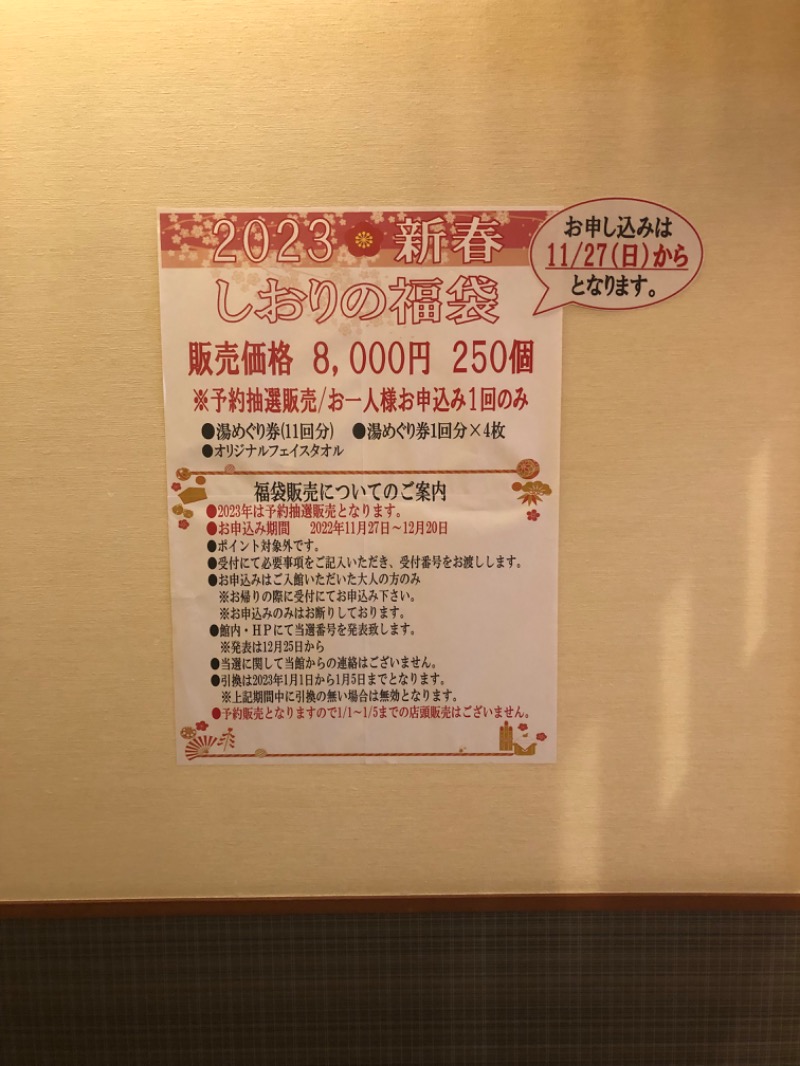 2023 新春
しおりの福袋
お申し込みは
11/27(日)から
となります。
販売価格 8,000円 250個
※予約抽選販売/お一人様お申込み1回のみ
●湯めぐり券(11回分) ●湯めぐり券1回分×4枚
●オリジナルフェイスタオル
福袋販売についてのご案内
●2023年は予約抽選販売となります。
●お申込み期間 2022年11月27日～12月20日
●ポイント対象外です。
●受付にて必要事項をご記入いただき、受付番号をお渡しします。
●お申込みはご入館いただいた大人の方のみ
※お帰りの際に受付にてお申込み下さい。
※お申込みのみはお断りしております。
●館内・HPにて当選番号を発表致します。
※発表は12月25日から
●当選に関して当館からの連絡はございません。
●引換は2023年1月1日から1月5日までとなります。
※上記期間中に引換の無い場合は無効となります。
●予約販売となりますので1/1～1/5までの店頭販売はございません。